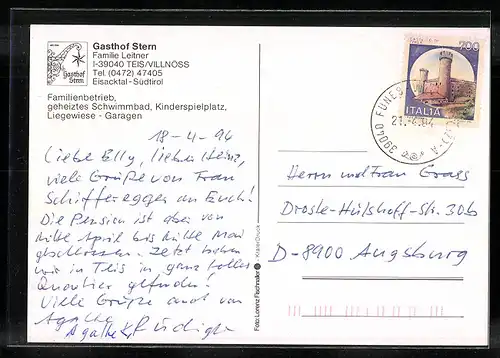 Gasthof Stern
Familie Leitner
I-39040 TEIS/VILLNÖSS
Tel. (0472) 47405
Eisacktal - Südtirol
Gasthof
Stern
Familienbetrieb,
geheiztes Schwimmbad, Kinderspielplatz,
Liegewiese - Garagen
18-4-94
Liebe Elly, lieber Heinz,
viele Grüße von Frau
Schifferegger an Euch!
Die Pension ist aber von
Mitte April bis Mitte Mai
geschlossen. Jetzt haben
wir in Teis in ganz tolles
Quartier gefunden!
Viele Grüße auch von
Agathe
Agathe + Rüdiger
Foto: Lorenz Fischnaller
700
ITALIA
39040 FUNES
21.-4.94
Herrn und Frau Grass
Droste-Hülshoff-Str. 30b
D-8900 Augsburg